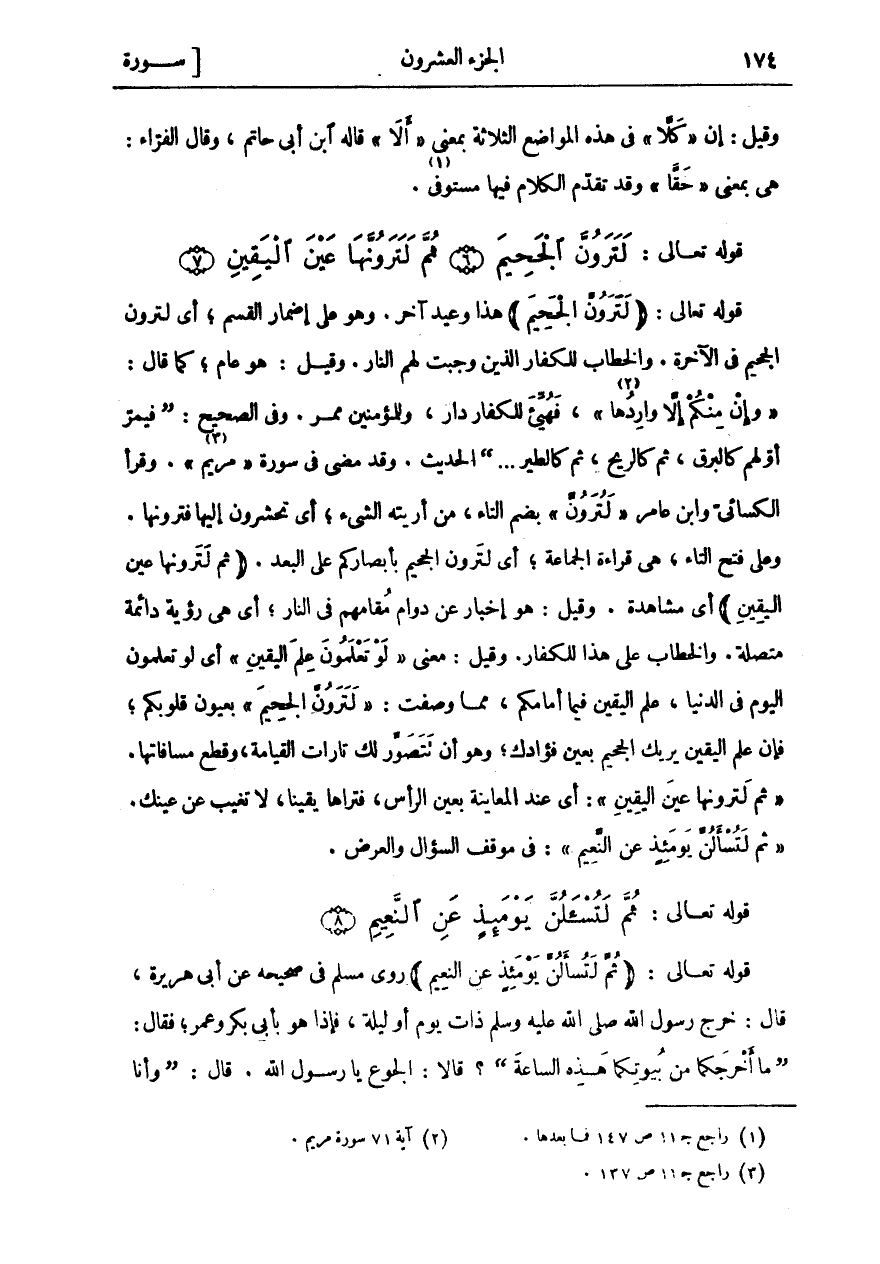 ١٧٤ الجزء العشرون [ ســورة
وقيل : إن « كَلَّا » فى هذه المواضع الثلاثة بمعنى « أَلَا » قاله ٱبن أبى حاتم ، وقال الفرّاء :
هى بمعنى « حَقًّا » وقد تقدّم الكلام فيها مستوفى (١) .
قوله تعـالى : لَتَرَوُنَّ ٱلْجَحِيمَ ﴿٦﴾ ثُمَّ لَتَرَوُنَّهَا عَيْنَ ٱلْيَقِينِ ﴿٧﴾
قوله تعالى : ﴿ لَتَرَوُنَّ الْجَحِيمَ ﴾ هذا وعيد آخر . وهو على إضمار القسم ؛ أى لترون
الجحيم فى الآخرة . والخطاب للكفار الذين وجبت لهم النار . وقيـل : هو عام ؛ كما قال :
« وإِنْ مِنْكُمْ إلَّا وارِدُها (٢) » ، فَهُيِّئَ للكفار دار ، وللمؤمنين ممـر . وفى الصحيح : ” فيمرّ
أوّلهم كالبرق ، ثم كالريح ، ثم كالطير ... “ الحديث . وقد مضى فى سورة « مريم (٣) » . وقرأ
الكسائىّ وابن عامر « لَتُرَوُنَّ » بضم التاء ، من أريته الشىء ؛ أى تحشرون إليها فترونها .
وعلى فتح التاء ، هى قراءة الجماعة ؛ أى لتَرون الجحيم بأبصاركم على البعد . ﴿ ثم لَتَرونها عين
اليقينِ ﴾ أى مشاهدة . وقيل : هو إخبار عن دوام مُقامهم فى النار ؛ أى هى رؤية دائمة
متصلة . والخطاب على هذا للكفار. وقيل : معنى « لَوْ تَعْلَمُونَ عِلمَ اليقينِ » أى لو تعلمون
اليوم فى الدنيا ، علم اليقين فيما أمامكم ، ممـا وصفت : « لَتَرَوُنَّ الجحِيمَ » بعيون قلوبكم ؛
فإن علم اليقين يريك الجحيم بعين فؤادك؛ وهو أن تَتَصَوَّر لك تارات القيامة، وقطع مسافاتها.
« ثم لَترونها عينَ اليقِينِ » : أى عند المعاينة بعين الرأس، فتراها يقينا، لا تغيب عن عينك.
« ثم لَتُسْأَلُنَّ يَومَئِذٍ عن النَّعِيم » : فى موقف السؤال والعرض .
قوله تعـالى : ثُمَّ لَتُسْـَٔلُنَّ يَوْمَئِذٍ عَنِ ٱلنَّعِيمِ ﴿٨﴾
قوله تعـالى : ﴿ ثُمَّ لَتُسأَلُنَّ يَوْمَئِذٍ عنِ النعيم ﴾ روى مسلم فى صحيحه عن أبى هريرة ،
قال : خرج رسول الله صلى الله عليه وسلم ذات يوم أو ليلة ، فإذا هو بأبي بكر وعمر؛ فقال:
” ما أَخْرَجَكما من بُيوتِكما هَـذِه الساعةَ “ ؟ قالا : الجوع يا رسـول الله . قال : ” وأنا
(١) راجع جـ ١١ ص ١٤٧ فمـا بعدها . (٢) آية ٧١ سورة مريم .
(٣) راجع جـ ١١ ص ١٣٧ .